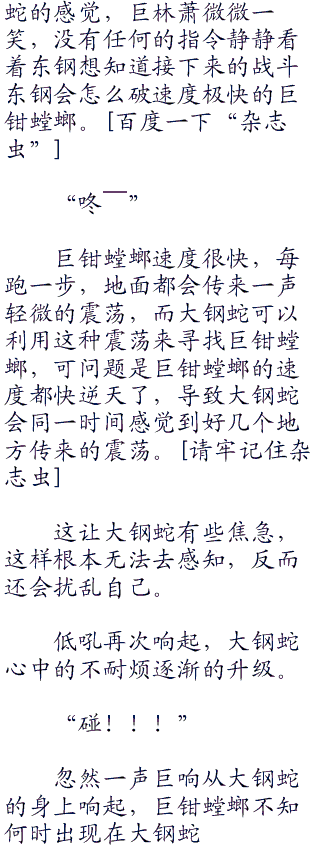 蛇的感觉，巨林萧微微一
笑，没有任何的指令静静看
着东钢想知道接下来的战斗
东钢会怎么破速度极快的巨
钳螳螂。[百度一下“杂志
虫”]
“咚——”
巨钳螳螂速度很快，每
跑一步，地面都会传来一声
轻微的震荡，而大钢蛇可以
利用这种震荡来寻找巨钳螳
螂，可问题是巨钳螳螂的速
度都快逆天了，导致大钢蛇
会同一时间感觉到好几个地
方传来的震荡。[请牢记住杂
志虫]
这让大钢蛇有些焦急，
这样根本无法去感知，反而
还会扰乱自己。
低吼再次响起，大钢蛇
心中的不耐烦逐渐的升级。
“碰！！！”
忽然一声巨响从大钢蛇
的身上响起，巨钳螳螂不知
何时出现在大钢蛇